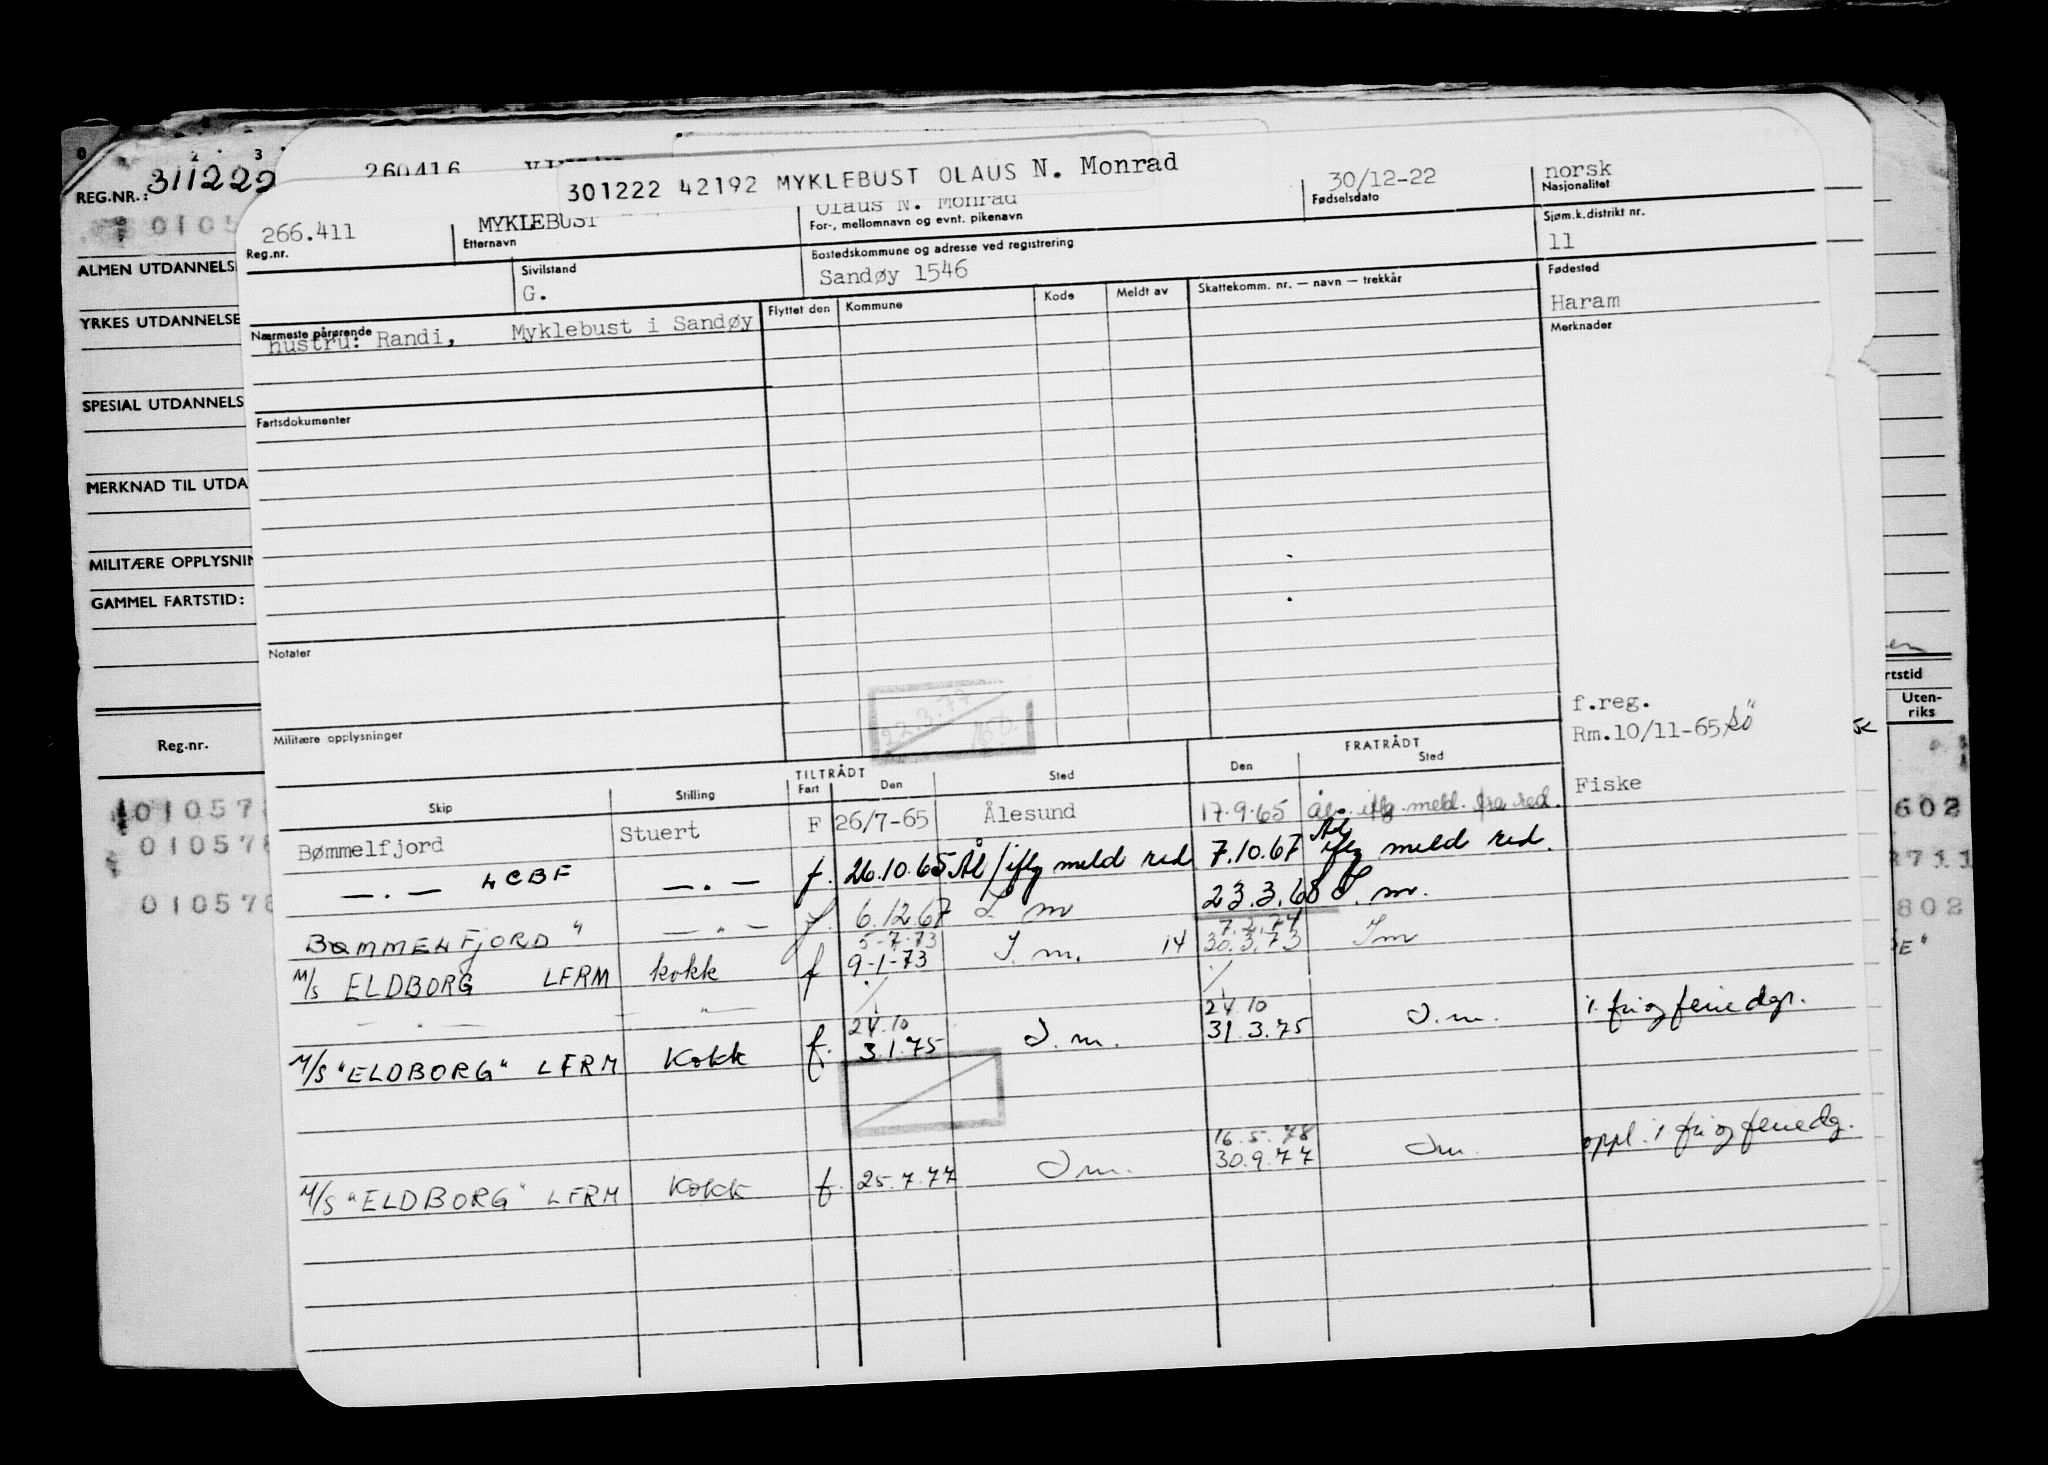 0 2 3
REG.NR.: 311222 260416
301222 42192 MYKLEBUST OLAUS N. Monrad
30/12-22 norsk
Fødselsdato Nasjonalitet
0105
266.411 MYKLEBUST Olaus N. Monrad
Reg.nr. Etternavn For-, mellomnavn og evnt. pikenavn Sjøm.k.distrikt nr.
11
ALMEN UTDANNELS
Sivilstand Bostedskommune og adresse ved registrering Fødested
G. Sandøy 1546 Haram
YRKES UTDANNELSE
Nærmeste pårørende Flyttet den Kommune Kode Meldt av Skattekomm. nr. — navn — trekkår Merknader
hustru: Randi, Myklebust i Sandøy
SPESIAL UTDANNELS
Fartsdokumenter
MERKNAD TIL UTDA
MILITÆRE OPPLYSNIN
GAMMEL FARTSTID:
Notater
22.3.77
f.reg.
Rm.10/11-65
Fiske
Militære opplysninger
Reg.nr.
rtstid
Uten-
riks
TILTRÅDT FRATRÅDT
Skip Stilling Fart Den Sted Den Sted
Bømmelfjord Stuert F 26/7-65 Ålesund 17.9.65 Ål. iflg. meld. fra red.
—.— LCBF —.— f. 26.10.65 Ål/iflg meld red 7.10.67 Ål iflg meld red.
BØMMELFJORD " —"— f. 6.12.67 S. m 23.3.68 S. m.
5-7-73 7.2.74
M/S ELDBORG LFRM kokk f 9-1-73 S. m. 14 30.3.73 Sm
— . — —"— ./. ./.
24.10 24.10
M/S "ELDBORG" LFRM Kokk f. 3.1.75 S. m. 31.3.75 S.m. i fri og feriedgr.
16.5.78
M/S "ELDBORG" LFRM Kokk f. 25.7.77 Sm. 30.9.77 Sm. oppl. i fri og feriedg.
010578
010578
010578
602
8711
802
E"